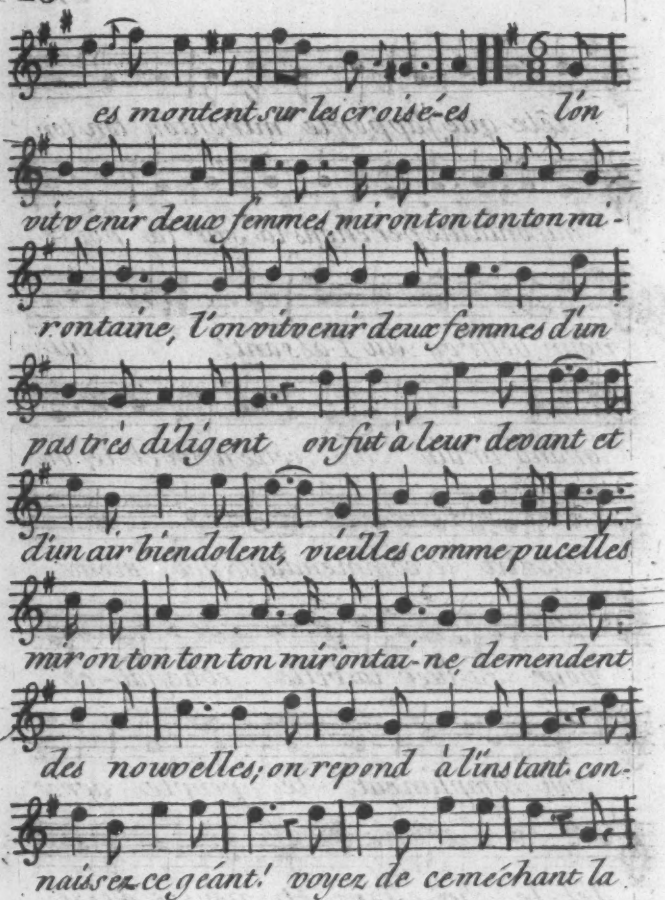 es montent sur les croisé-es l'on
vit venir deux femmes mironton tonton mi-
rontaine, l'on vit venir deux femmes d'un
pas très diligent on fut à leur devant et
d'un air bien dolent, vieilles comme pucelles
mironton tonton mirontai-ne, demendent
des nouvelles; on repond à l'instant. con-
naissez ce géant! voyez de ce méchant la